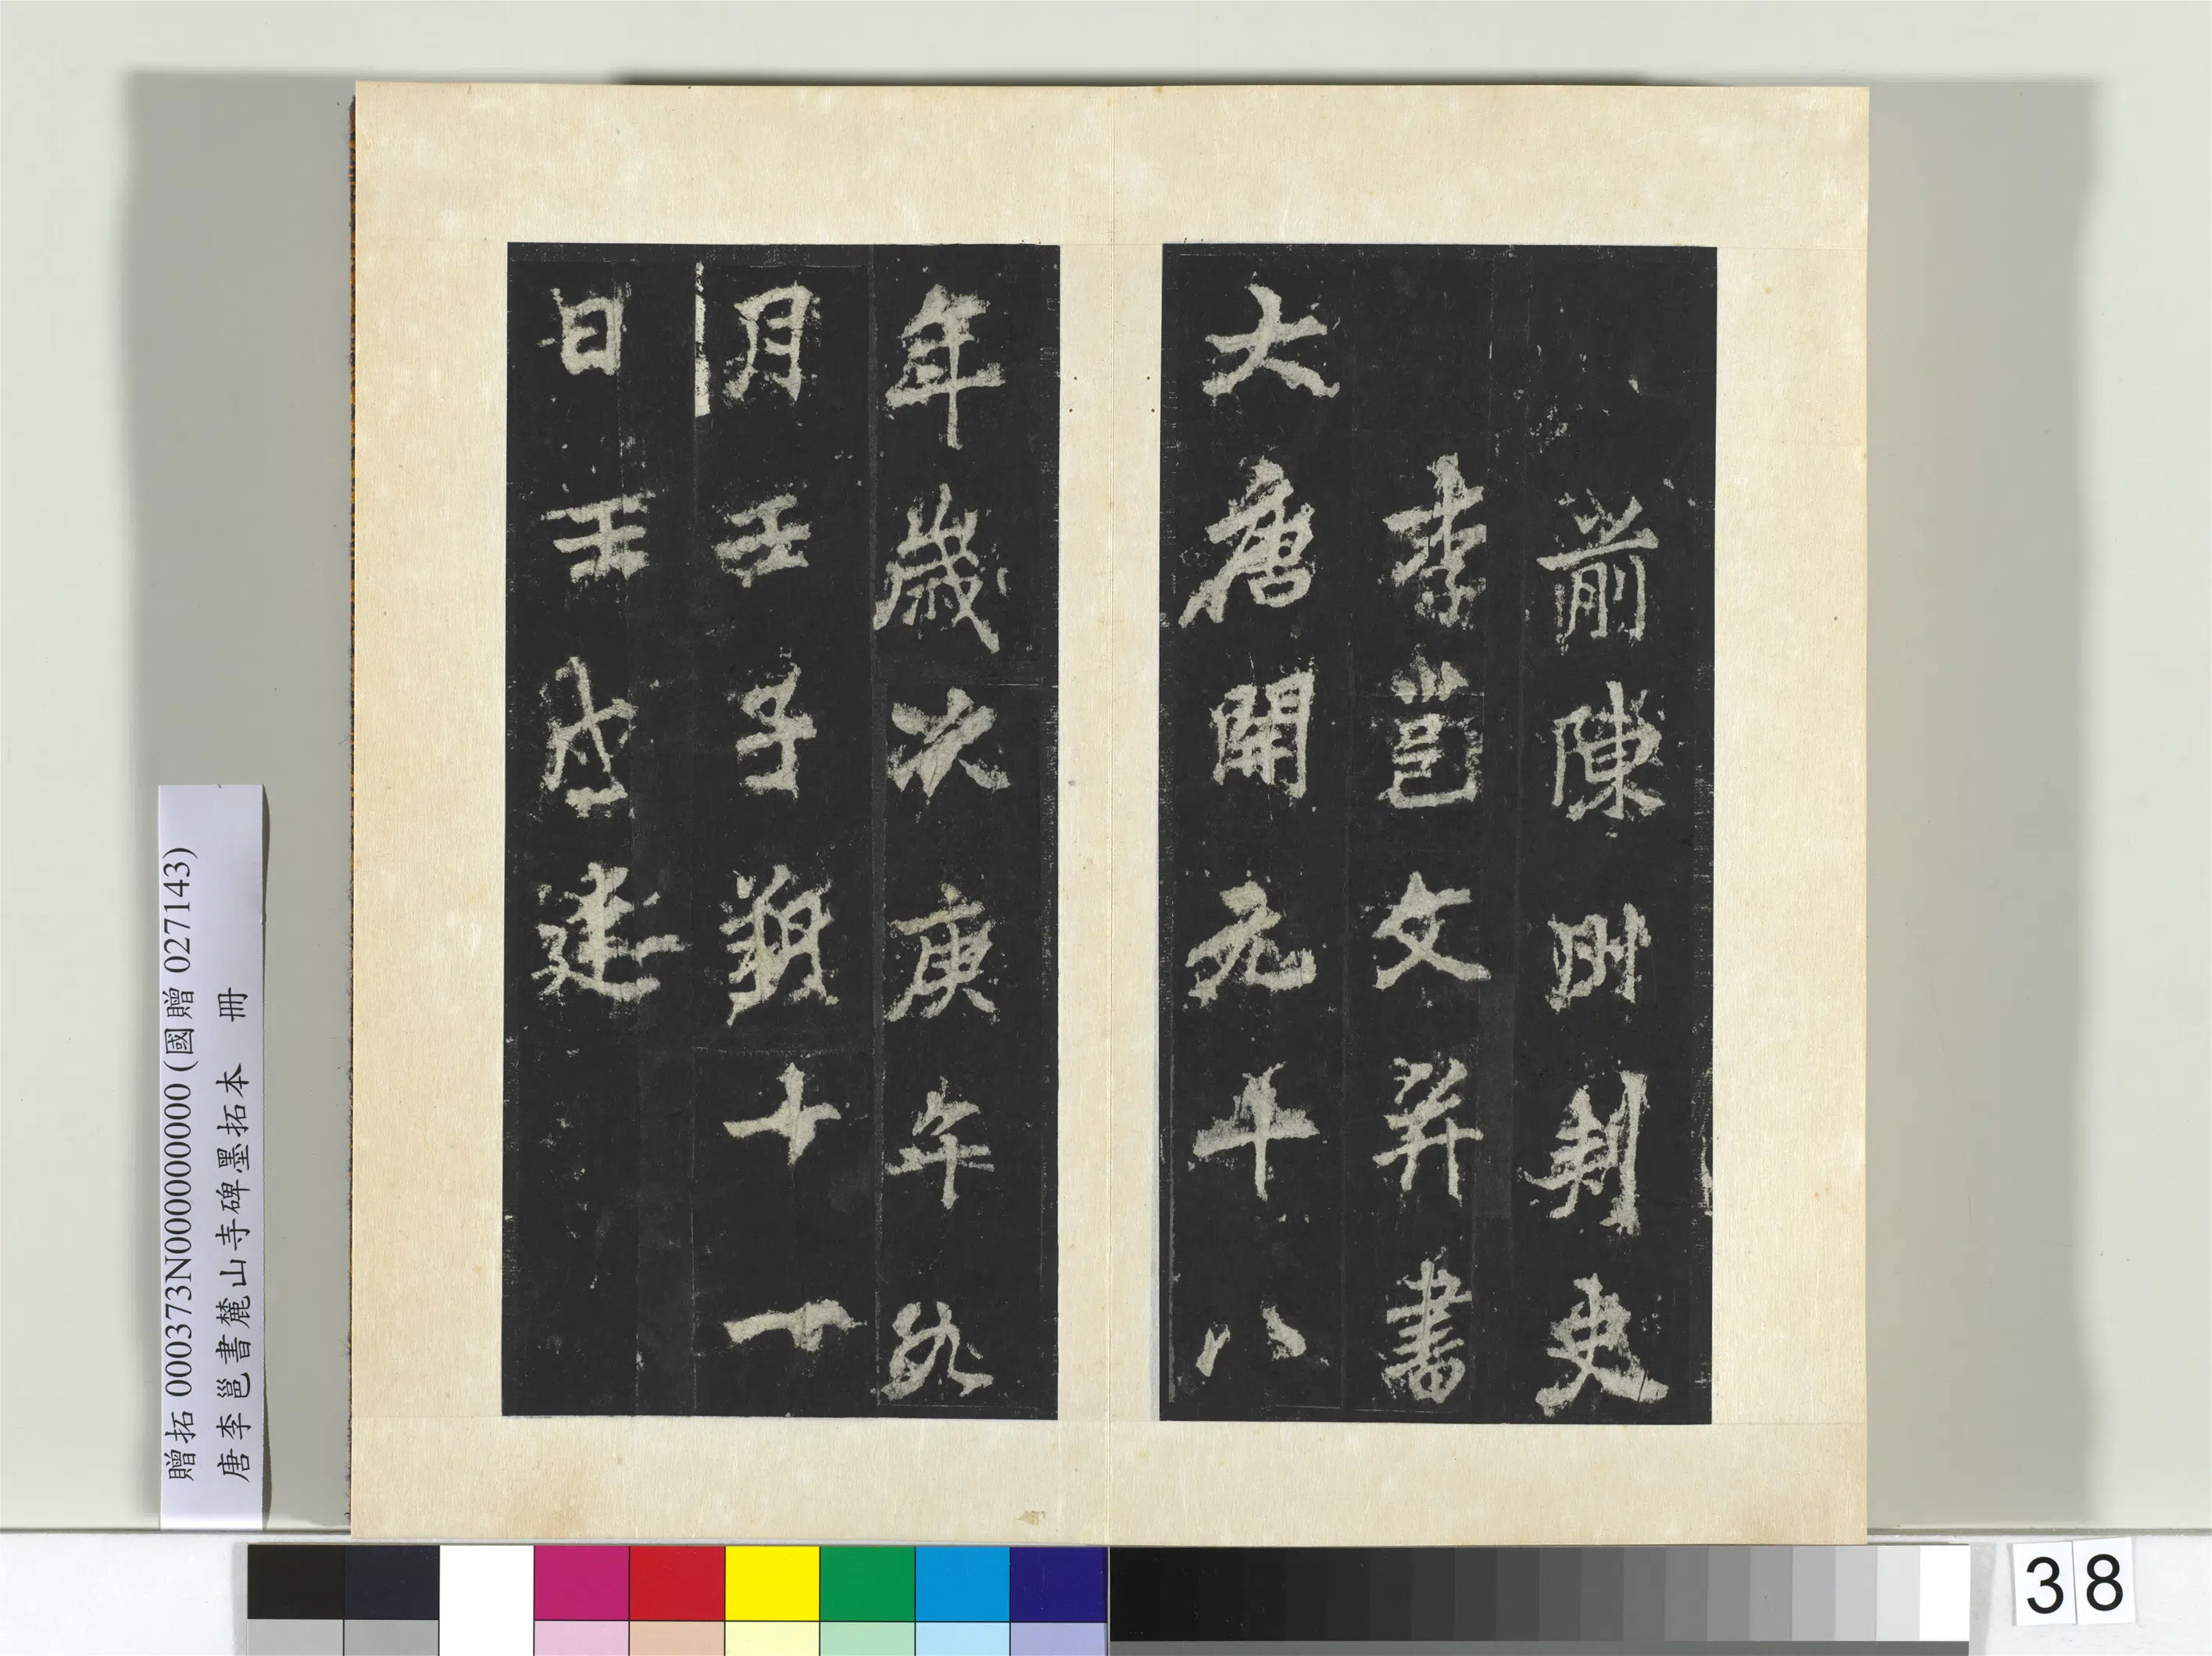 前陳州刺史
李邕文并書
大唐開元十八
年歲次庚午九
月壬子朔十一
日壬戌建
贈拓 000373N000000000 (國贈 027143)
唐李邕書麓山寺碑墨拓本 冊
38